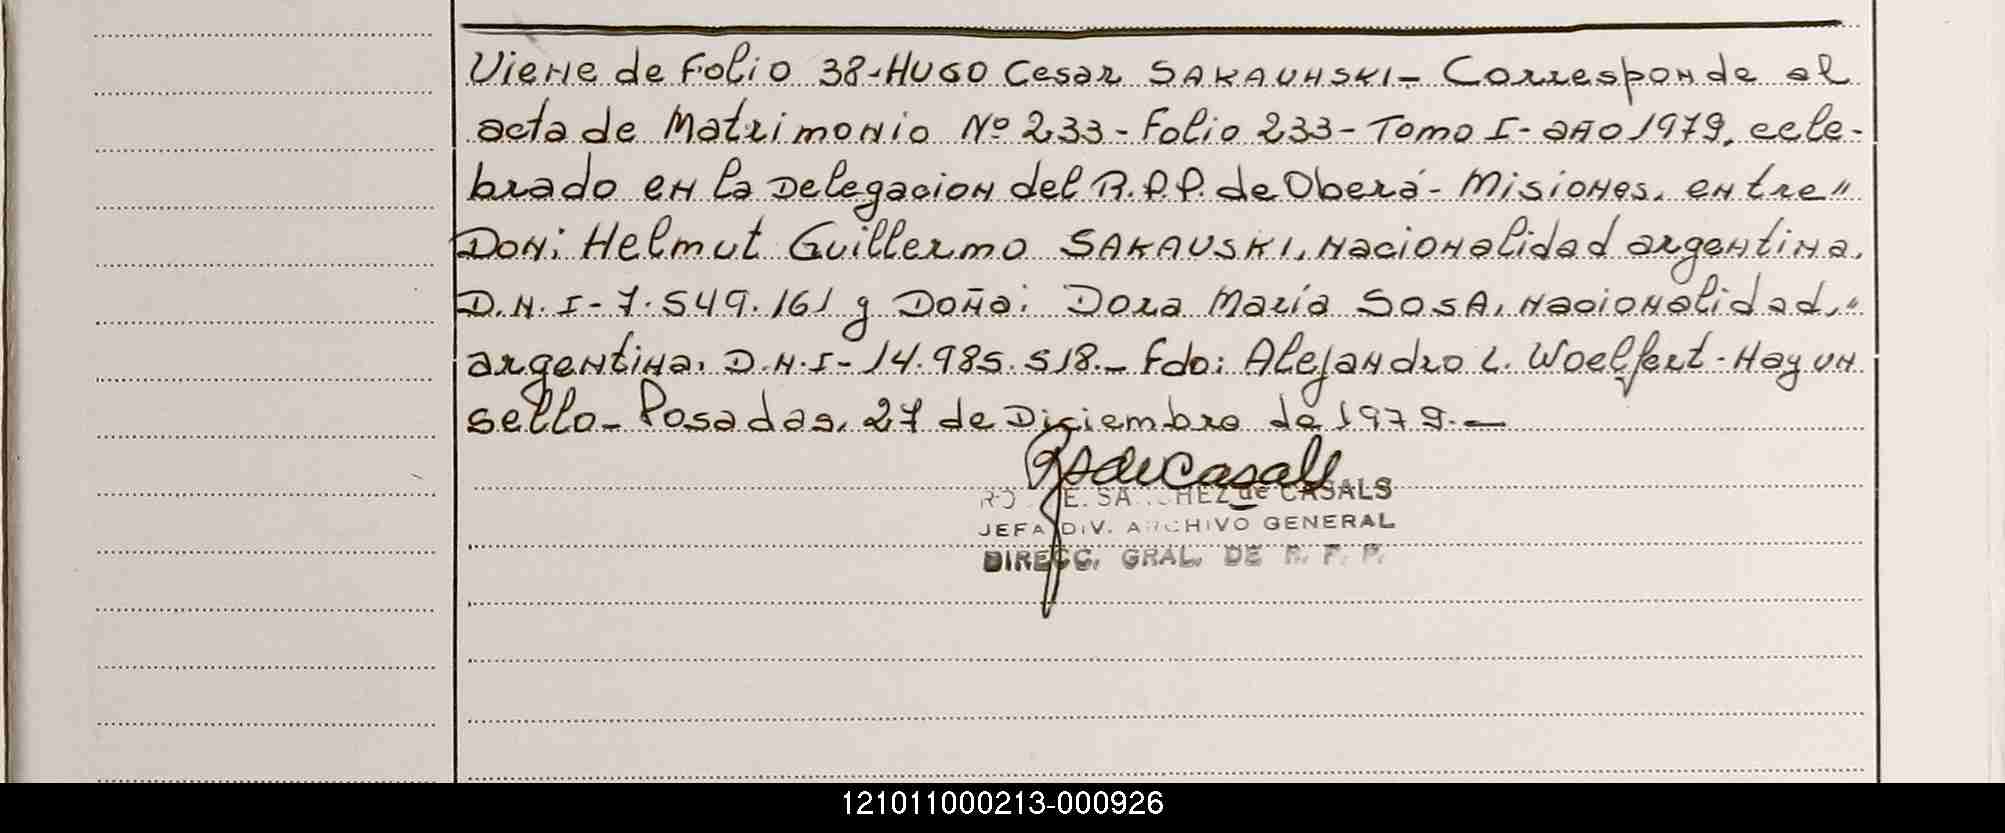 Viene de Folio 38-HUGO Cesar SAKAUNSKI- Corresponde al
acta de Matrimonio Nº 233-Folio 233-Tomo I-año 1979, cele-
brado en la Delegacion del R.P.P. de Oberá-Misiones, entre"
Don: Helmut Guillermo SAKAUSKI, nacionalidad argentina,
D.N.I-7.549.161 y Doña: Dora María SOSA, nacionalidad,"
argentina, D.N.I-14.985.518.- Fdo: Alejandro L. Woelfert-Hay un
sello- Posadas, 27 de Diciembre de 1979.-
E. SA CHEZ de CASALS
JEFA DIV. ARCHIVO GENERAL
DIRECC. GRAL. DE R. P. P.
121011000213-000926